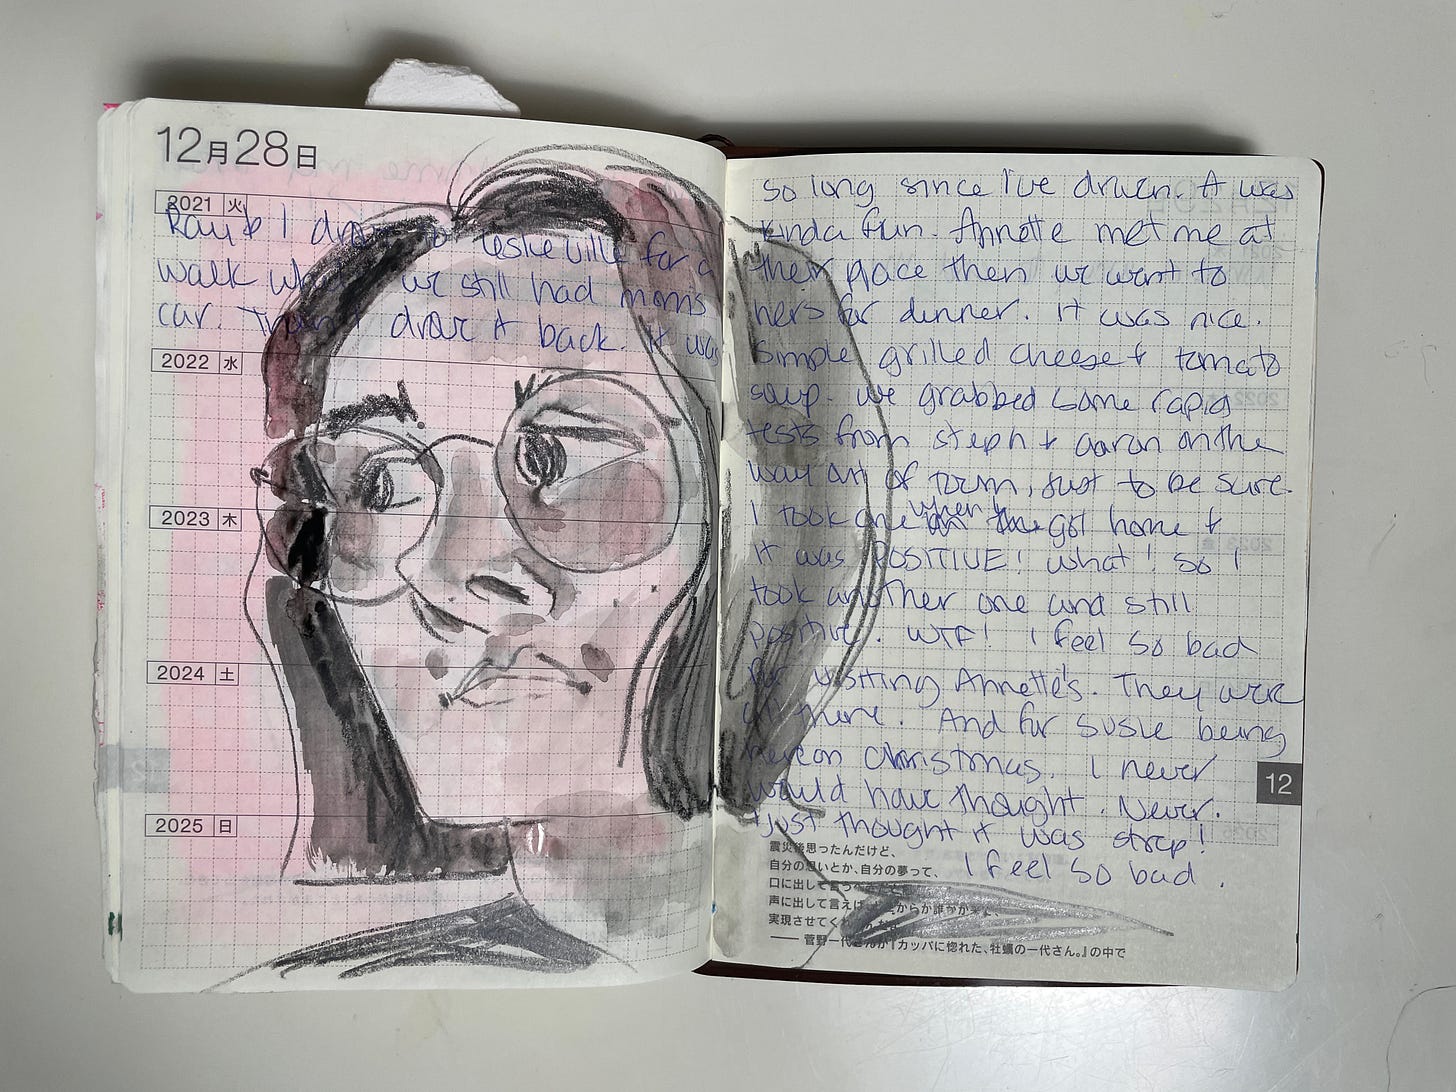 12月28日
2021 火
I drove to Leslieville for a
walk we still had moms
car. Then I drove it back. It was
2022 水
2023 木
2024 土
2025 日
so long since I've driven. It was
kinda fun. Annette met me at
their place then we went to
hers for dinner. It was nice.
Simple grilled cheese & tomato
soup. We grabbed some rapid
tests from Steph & Aaron on the
way out of town, just to be sure.
I took one when got home &
it was POSITIVE! What! So I
took another one and still
positive. WTF! I feel so bad
for visiting Annette's. They were
all there. And for Susie being
here on Christmas. I never
would have thought. Never.
I just thought it was strep!
I feel so bad.
12
震災後思ったんだけど、
自分の想いとか、自分の夢って、
口に出して言う
声に出して言えば、 からか誰かが
実現させてく
── 菅野一代さんが『カッパに惚れた、牡蠣の一代さん。』の中で